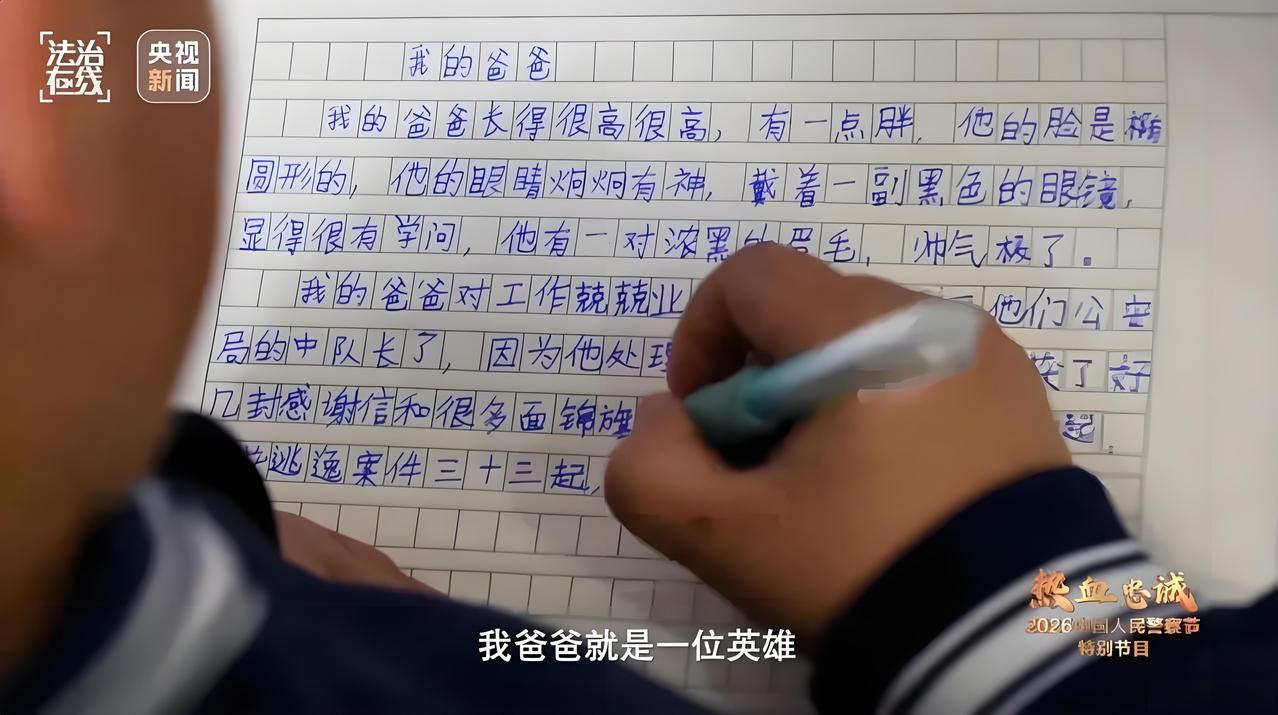 法治
在线
央视
新闻
我的爸爸
我的爸爸长得很高很高，有一点胖，他的脸是椭
圆形的，他的眼睛炯炯有神，戴着一副黑色的眼镜，
显得很有学问，他有一对浓黑的眉毛，帅气极了。
我的爸爸对工作兢兢业 他们公安
局的中队长了，因为他处理 了好
几封感谢信和很多面锦旗 起，
逃逸案件三十三起，
热血忠诚
2026中国人民警察节
特别节目
我爸爸就是一位英雄